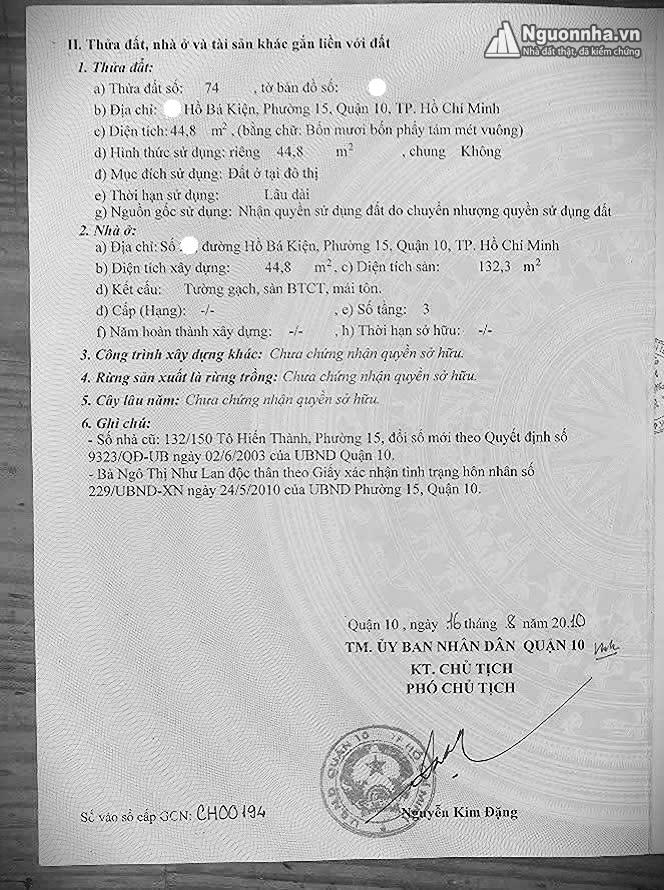 Nguonnha.vn
Nhà đất thật, đã kiểm chứng
II. Thửa đất, nhà ở và tài sản khác gắn liền với đất
1. Thửa đất:
a) Thửa đất số: 74 , tờ bản đồ số:
b) Địa chỉ: Hồ Bá Kiện, Phường 15, Quận 10, TP. Hồ Chí Minh
c) Diện tích: 44,8 m², (bằng chữ: Bốn mươi bốn phẩy tám mét vuông)
d) Hình thức sử dụng: riêng 44,8 m² , chung Không
đ) Mục đích sử dụng: Đất ở tại đô thị
e) Thời hạn sử dụng: Lâu dài
g) Nguồn gốc sử dụng: Nhận quyền sử dụng đất do chuyển nhượng quyền sử dụng đất
2. Nhà ở:
a) Địa chỉ: Số đường Hồ Bá Kiện, Phường 15, Quận 10, TP. Hồ Chí Minh
b) Diện tích xây dựng: 44,8 m², c) Diện tích sàn: 132,3 m²
d) Kết cấu: Tường gạch, sàn BTCT, mái tôn.
đ) Cấp (Hạng): -/- , e) Số tầng: 3
f) Năm hoàn thành xây dựng: -/- , h) Thời hạn sở hữu: -/-
3. Công trình xây dựng khác: Chưa chứng nhận quyền sở hữu.
4. Rừng sản xuất là rừng trồng: Chưa chứng nhận quyền sở hữu.
5. Cây lâu năm: Chưa chứng nhận quyền sở hữu.
6. Ghi chú:
- Số nhà cũ: 132/150 Tô Hiến Thành, Phường 15, đổi số mới theo Quyết định số
9323/QĐ-UB ngày 02/6/2003 của UBND Quận 10.
- Bà Ngô Thị Như Lan độc thân theo Giấy xác nhận tình trạng hôn nhân số
229/UBND-XN ngày 24/5/2010 của UBND Phường 15, Quận 10.
Quận 10 , ngày 16 tháng 8 năm 2010
TM. ỦY BAN NHÂN DÂN QUẬN 10
KT. CHỦ TỊCH
PHÓ CHỦ TỊCH
U.B.N.D QUẬN 10
Nguyễn Kim Đặng
Số vào sổ cấp GCN: CH00194